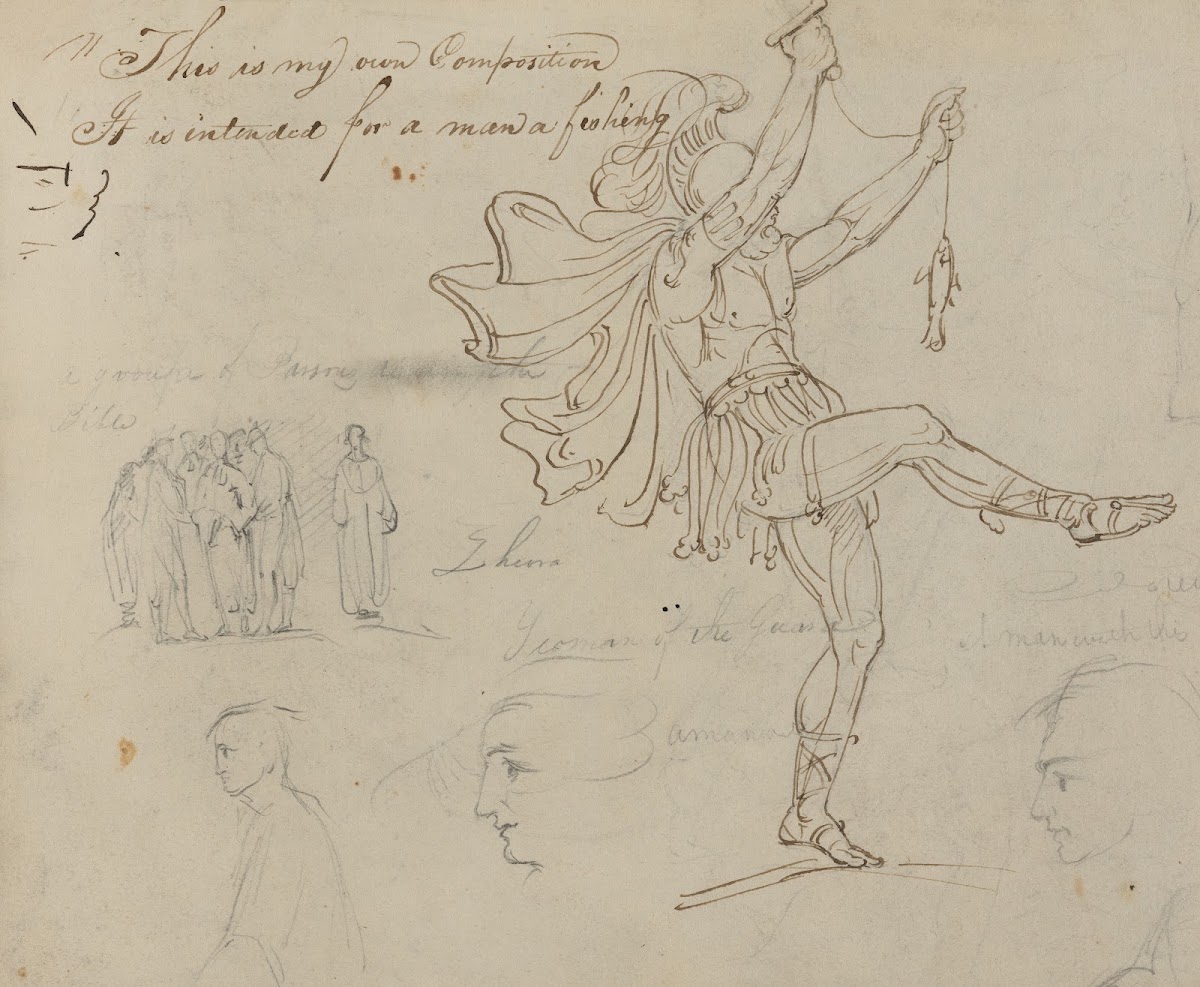 " This is my own Composition
It is intended for a man a fishing
a groupe of Parsons
Bible
Yeoman of the Guard
A man with his
a man